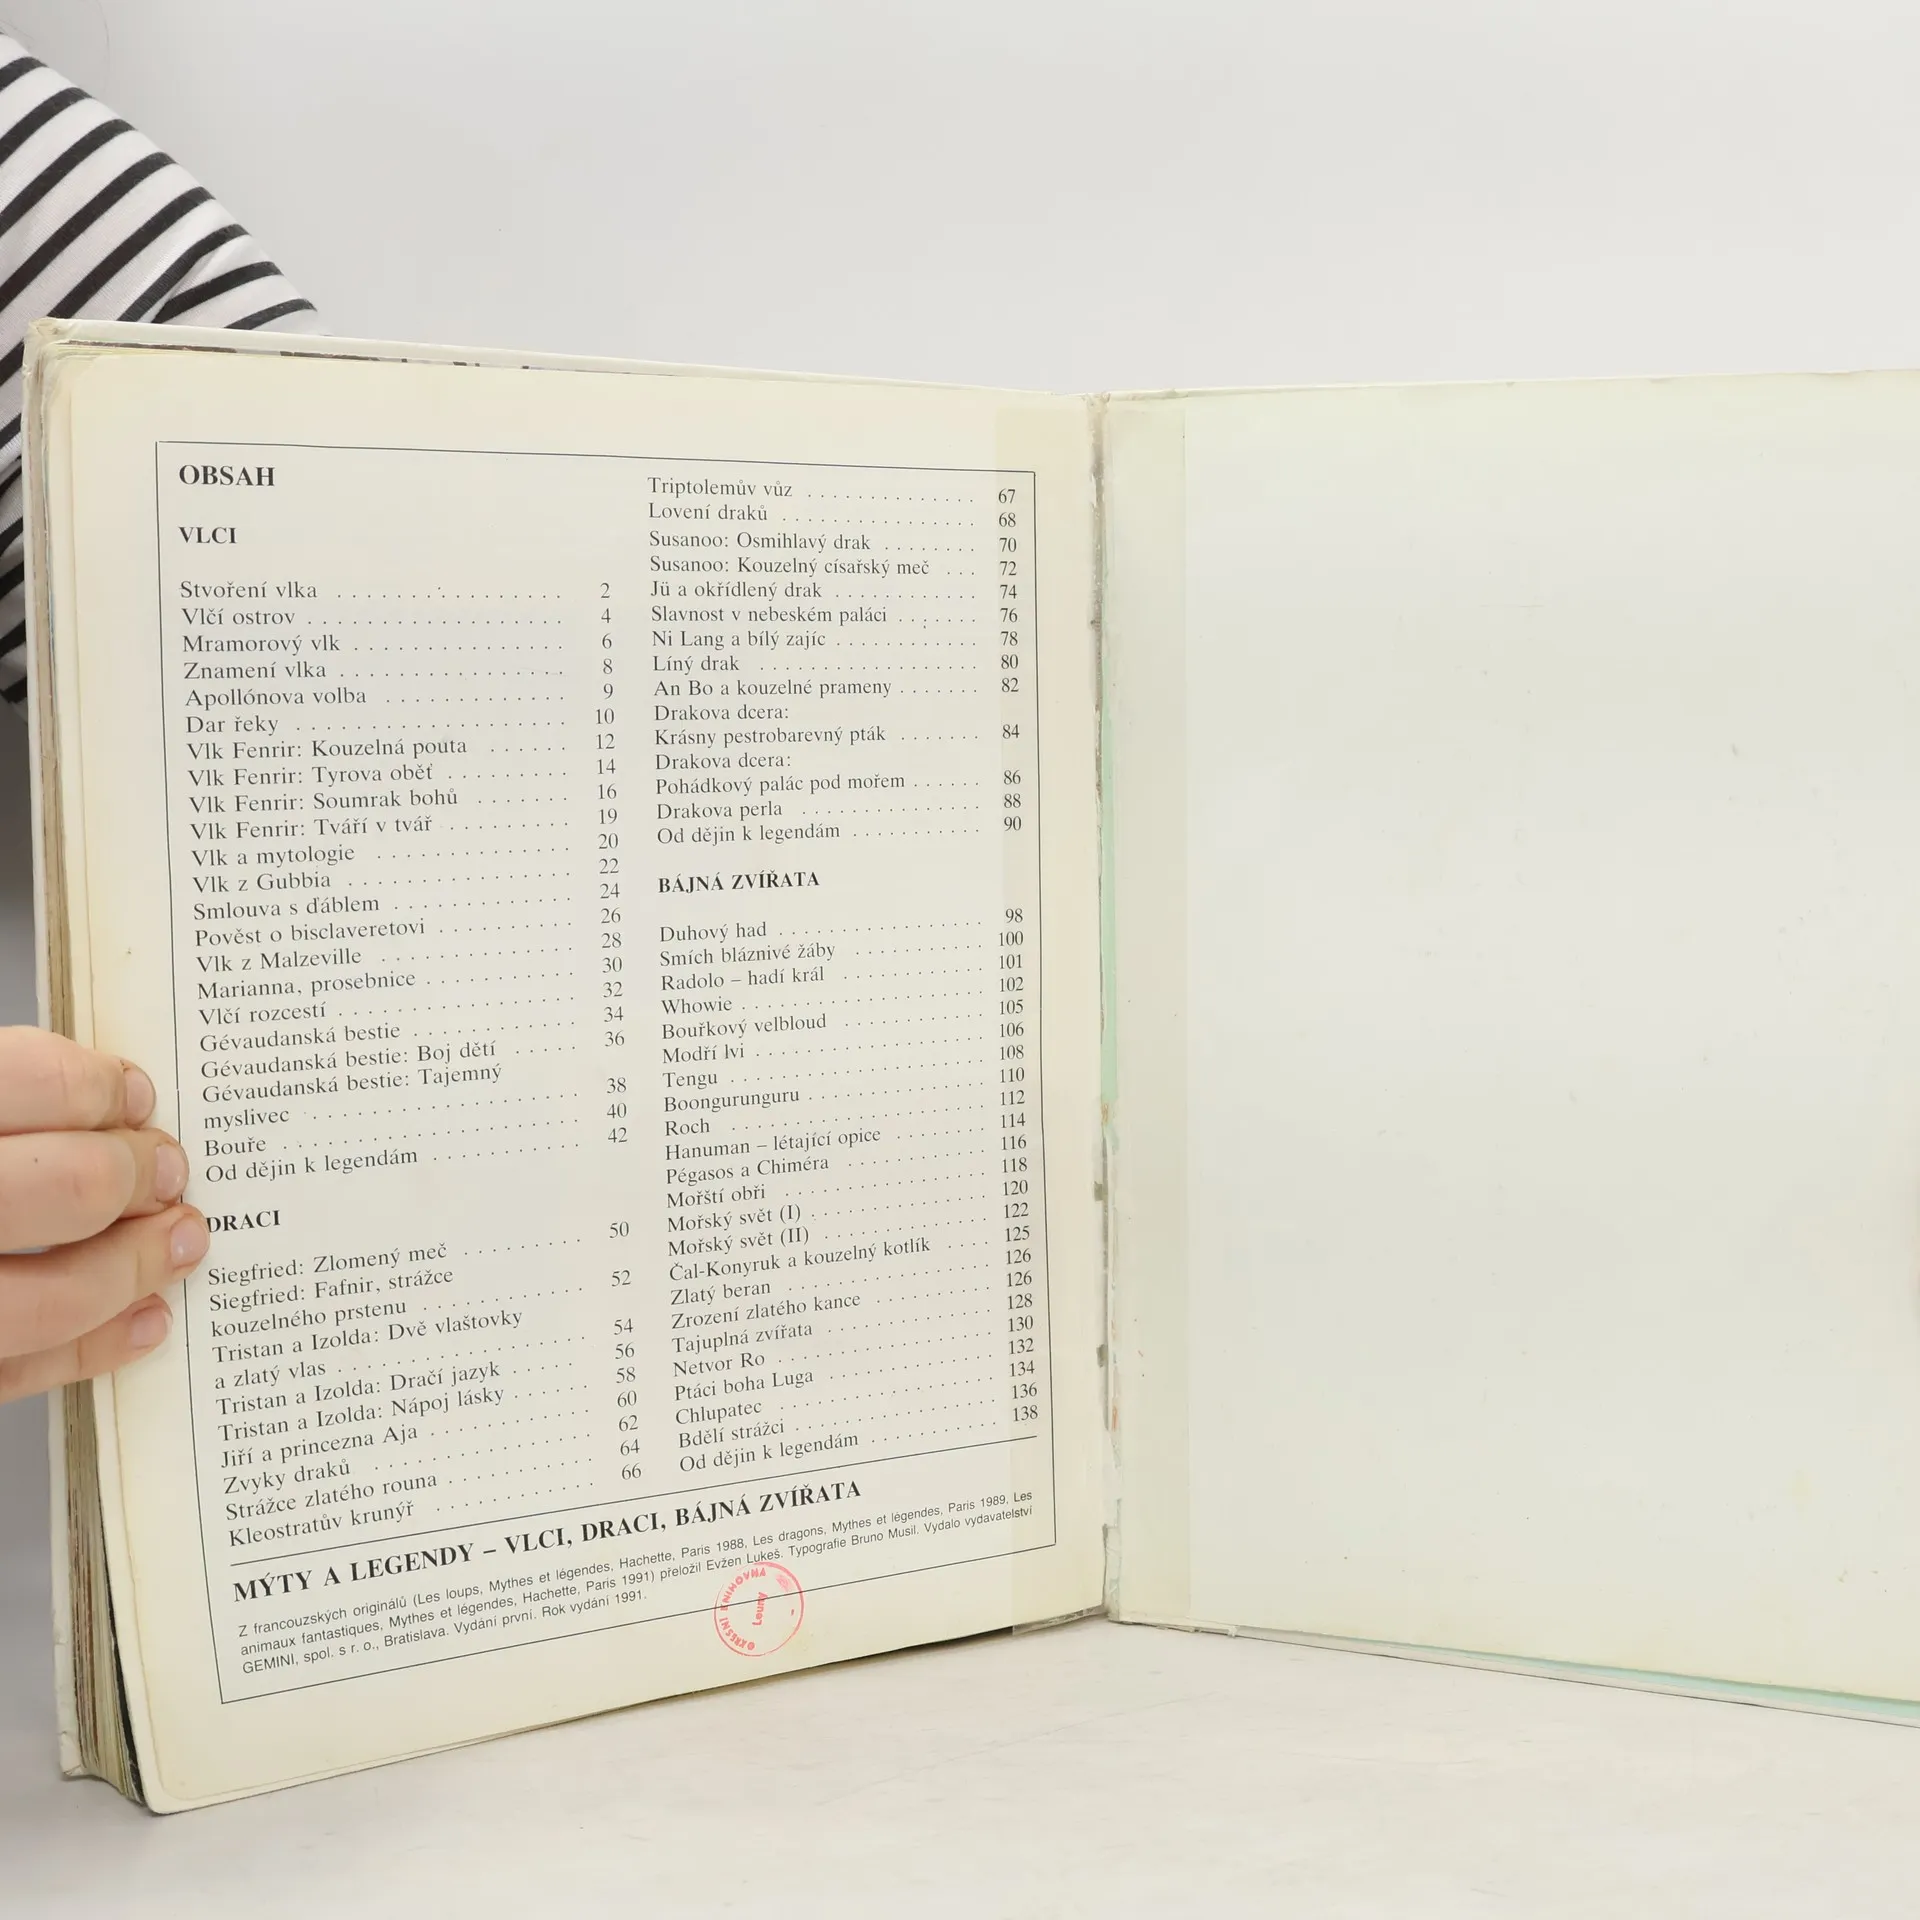 OBSAH
VLCI
Stvoření vlka . . . . . . . . . . . . . . . . . . 2
Vlčí ostrov . . . . . . . . . . . . . . . . . . . . 4
Mramorový vlk . . . . . . . . . . . . . . . . . 6
Znamení vlka . . . . . . . . . . . . . . . . . . 8
Apollónova volba . . . . . . . . . . . . . . 9
Dar řeky . . . . . . . . . . . . . . . . . . . . . 10
Vlk Fenrir: Kouzelná pouta . . . . . . 12
Vlk Fenrir: Tyrova oběť . . . . . . . . . . 14
Vlk Fenrir: Soumrak bohů . . . . . . . 16
Vlk Fenrir: Tváří v tvář . . . . . . . . . . 19
Vlk a mytologie . . . . . . . . . . . . . . . 20
Vlk z Gubbia . . . . . . . . . . . . . . . . . . 22
Smlouva s ďáblem . . . . . . . . . . . . . . 24
Pověst o bisclaveretovi . . . . . . . . . . . 26
Vlk z Malzeville . . . . . . . . . . . . . . . 28
Marianna, prosebnice . . . . . . . . . . . . 30
Vlčí rozcestí . . . . . . . . . . . . . . . . . . . 32
Gévaudanská bestie . . . . . . . . . . . . . 34
Gévaudanská bestie: Boj dětí . . . . . 36
Gévaudanská bestie: Tajemný
myslivec . . . . . . . . . . . . . . . . . . . . . 38
Bouře . . . . . . . . . . . . . . . . . . . . . . . 40
Od dějin k legendám . . . . . . . . . . . . 42
DRACI
Siegfried: Zlomený meč . . . . . . . . . . 50
Siegfried: Fafnir, strážce
kouzelného prstenu . . . . . . . . . . . . . 52
Tristan a Izolda: Dvě vlaštovky
a zlatý vlas . . . . . . . . . . . . . . . . . . . . 54
Tristan a Izolda: Dračí jazyk . . . . . 56
Tristan a Izolda: Nápoj lásky . . . . . . 58
Jiří a princezna Aja . . . . . . . . . . . . . 60
Zvyky draků . . . . . . . . . . . . . . . . . . 62
Strážce zlatého rouna . . . . . . . . . . . . 64
Kleostratův krunýř . . . . . . . . . . . . . 66
Triptolemův vůz . . . . . . . . . . . . . . 67
Lovení draků . . . . . . . . . . . . . . . . 68
Susanoo: Osmihlavý drak . . . . . . . . 70
Susanoo: Kouzelný císařský meč . . . 72
Jü a okřídlený drak . . . . . . . . . . . . 74
Slavnost v nebeském paláci . . . . . . . 76
Ni Lang a bílý zajíc . . . . . . . . . . . . 78
Líný drak . . . . . . . . . . . . . . . . . . 80
An Bo a kouzelné prameny . . . . . . . 82
Drakova dcera:
Krásny pestrobarevný pták . . . . . . . 84
Drakova dcera:
Pohádkový palác pod mořem . . . . . . 86
Drakova perla . . . . . . . . . . . . . . . 88
Od dějin k legendám . . . . . . . . . . . 90
BÁJNÁ ZVÍŘATA
Duhový had . . . . . . . . . . . . . . . . . 98
Smích bláznivé žáby . . . . . . . . . . . 100
Radolo – hadí král . . . . . . . . . . . . 101
Whowie . . . . . . . . . . . . . . . . . . . . 102
Bouřkový velbloud . . . . . . . . . . . . 105
Modří lvi . . . . . . . . . . . . . . . . . . . 106
Tengu . . . . . . . . . . . . . . . . . . . . . 108
Boongurunguru . . . . . . . . . . . . . . . 110
Roch . . . . . . . . . . . . . . . . . . . . . 112
Hanuman – létající opice . . . . . . . . 114
Pégasos a Chiméra . . . . . . . . . . . . 116
Mořští obři . . . . . . . . . . . . . . . . . 118
Mořský svět (I) . . . . . . . . . . . . . . . 120
Mořský svět (II) . . . . . . . . . . . . . . 122
Čal-Konyruk a kouzelný kotlík . . . . 125
Zlatý beran . . . . . . . . . . . . . . . . . 126
Zrození zlatého kance . . . . . . . . . . 126
Tajuplná zvířata . . . . . . . . . . . . . . 128
Netvor Ro . . . . . . . . . . . . . . . . . . 130
Ptáci boha Luga . . . . . . . . . . . . . . 132
Chlupatec . . . . . . . . . . . . . . . . . . 134
Bdělí strážci . . . . . . . . . . . . . . . . . 136
Od dějin k legendám . . . . . . . . . . . 138
MÝTY A LEGENDY – VLCI, DRACI, BÁJNÁ ZVÍŘATA
Z francouzských originálů (Les loups, Mythes et légendes, Hachette, Paris 1988, Les dragons, Mythes et légendes, Paris 1989, Les
animaux fantastiques, Mythes et légendes, Hachette, Paris 1991) přeložil Evžen Lukeš. Typografie Bruno Musil. Vydalo vydavatelství
GEMINI, spol. s r. o., Bratislava. Vydání první. Rok vydání 1991.
OKRESNÍ KNIHOVNA
Louny